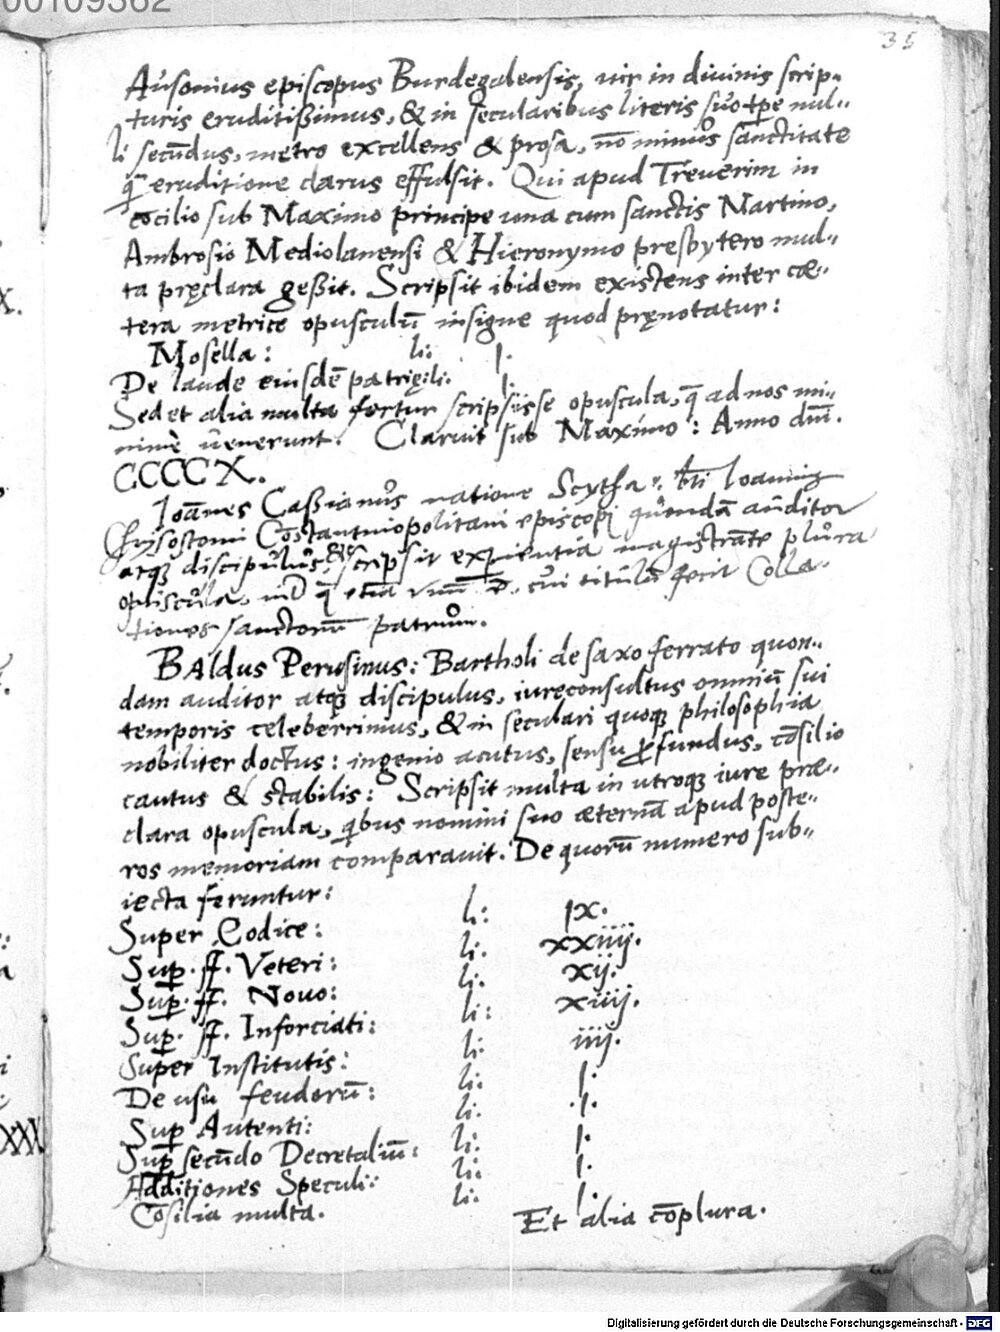 00109362
35
Ausonius episcopus Burdegalensis, uir in diuinis scrip-
turis eruditißimus, & in secularibus literis suo tp̄e nul-
li secūdus, metro excellens & prosa, nō minus sanctitate
q̄ eruditione clarus effulsit. Qui apud Treuerim in
cōcilio sub Maximo principe una cum sanctis Martino,
Ambrosio Mediolanensi & Hieronymo presbytero mul-
ta pręclara geßit. Scripsit ibidem existens inter cæ-
tera metrice opusculū insigne quod pręnotatur:
Mosella: li: I.
De laude eiusdē patrię: li: I.
Sed et alia multa fertur scripsisse opuscula, q̄ ad nos mi-
nime uenerunt. Claruit sub Maximo: Anno dn̄i.
CCCCX.
Ioānes Caßianus natione Scytha: bt̄i Ioannis
Chrysostomi Cōstantinopolitani episcopi quondā auditor
atq; discipulus, scripsit experientia magistrāte plura
opuscula, cui titulū fecit Colla-
tiones sanctorū patrum.
BAldus Perusinus: Bartholi de saxo ferrato quon-
dam auditor atq; discipulus, iureconsultus omniū sui
temporis celeberrimus, & in seculari quoq; philosophia
nobiliter doctus: ingenio acutus, sensu ꝓfundus, cōsilio
cautus & stabilis: Scripsit multa in utroq; iure præ-
clara opuscula, q̇bus nomini suo æternā apud poste-
ros memoriam comparauit. De quorū numero sub-
iecta feruntur:
Super Codice: li: IX.
Suꝑ. ff. Veteri: li: xxiiij.
Suꝑ. ff. Nouo: li: xij.
Suꝑ. ff. Inforciati: li: xiiij.
Super Institutis: li: iiij.
De usu feudorū: li: I.
Suꝑ Autenti: li: I.
Suꝑ secūdo Decretaliū: li: I.
Additiones Speculi: li: I.
Cōsilia multa. li: I.
Et alia cōplura.
Digitalisierung gefördert durch die Deutsche Forschungsgemeinschaft - DFG